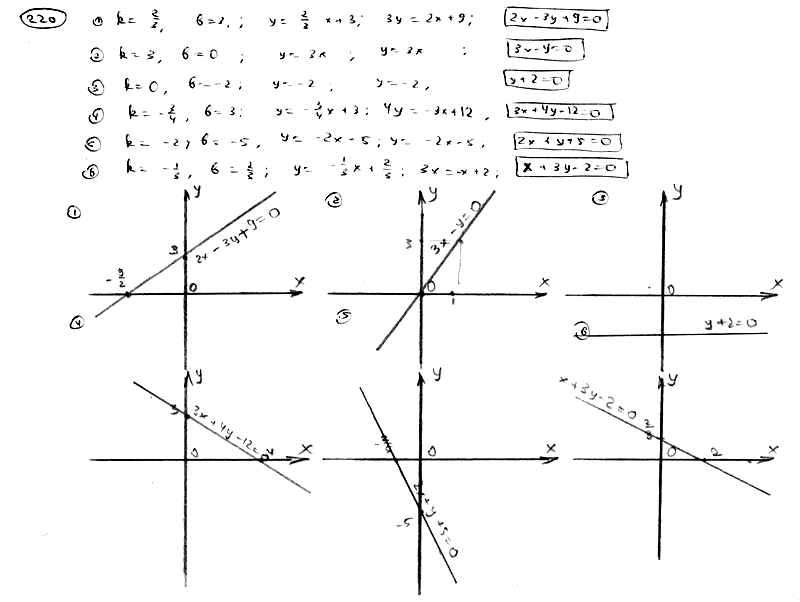 220 ① k = 2/3, b=2,; y = 2/3 x + 3; 3y = 2x + 9; 2x - 3y + 9 = 0
② k = 3, b = 0; y = 3x, y = 3x; 3x - y = 0
③ k = 0, b = -2; y = -2, y = -2, y + 2 = 0
④ k = -3/4, b = 3; y = -3/4 x + 3; 4y = -3x + 12, 3x + 4y - 12 = 0
⑤ k = -2; b = -5, y = -2x - 5; y = -2x - 5, 2x + y + 5 = 0
⑥ k = -1/3, b = 2/3; y = -1/3 x + 2/3; 3x = -x + 2; x + 3y - 2 = 0
① y 3 2x - 3y + 9 = 0 -9/2 0 x
② y 3 3x - y = 0 0 1 x
③ y 0 x y + 2 = 0
④ y 3 3x + 4y - 12 = 0 0 x
⑤ y 0 x -5 2x + y + 5 = 0
⑥ y x + 3y - 2 = 0 2/3 0 2 x